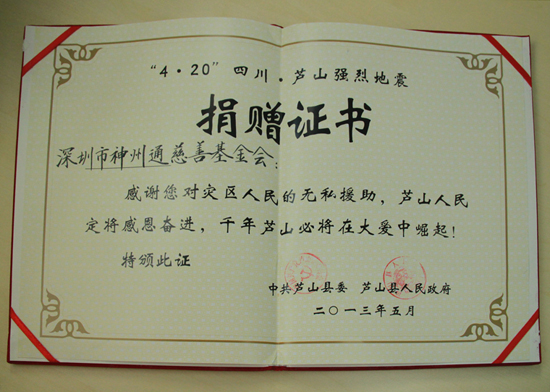 “4·20”四川·芦山强烈地震
捐赠证书
深圳市神州通慈善基金会：
感谢您对灾区人民的无私援助，芦山人民
定将感恩奋进，千年芦山必将在大爱中崛起！
特颁此证
中共芦山县委 芦山县人民政府
二〇一三年五月